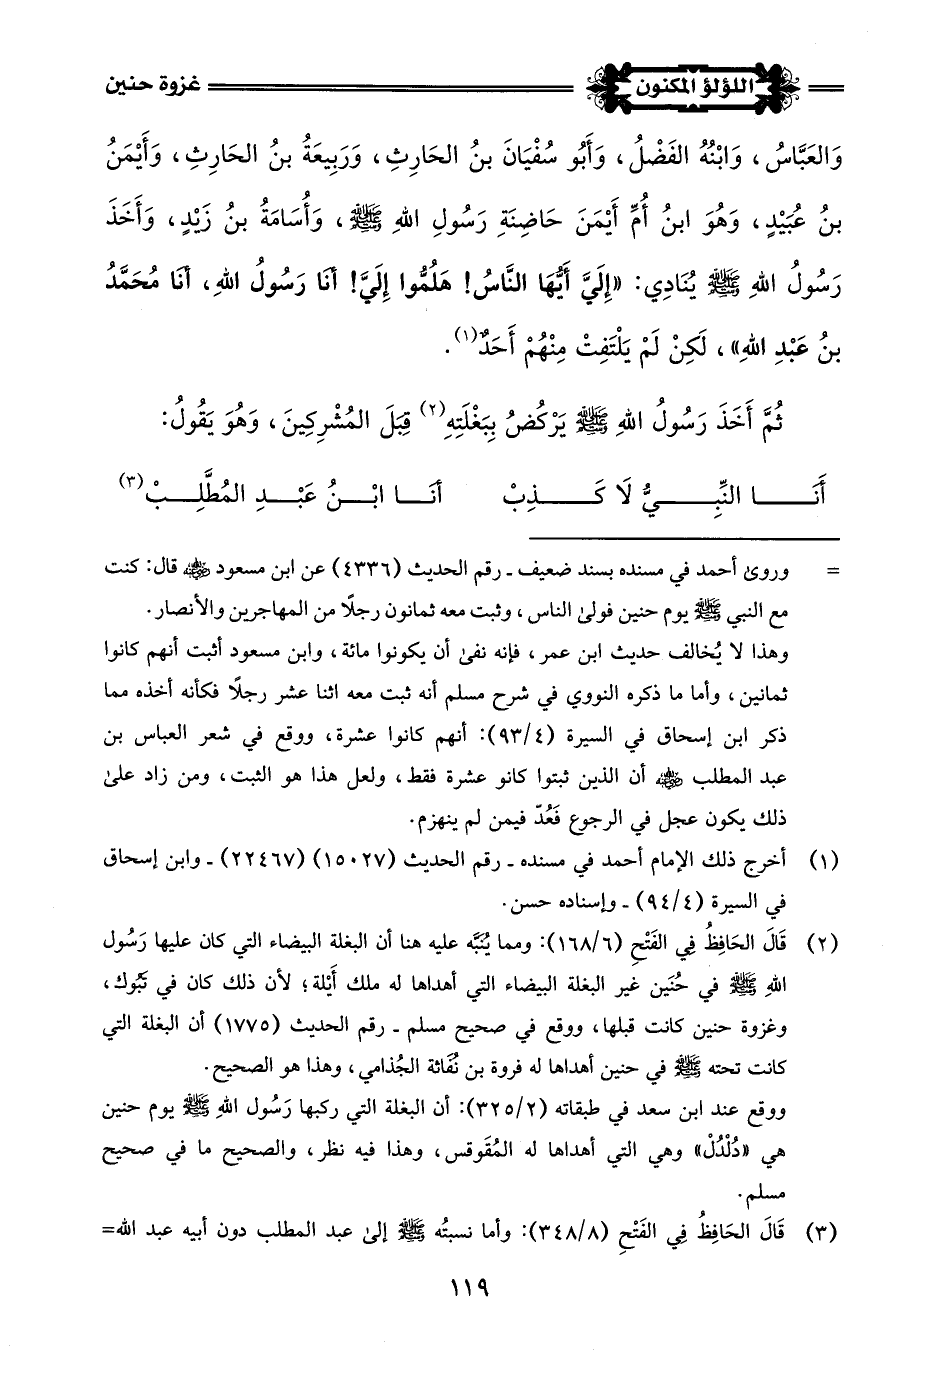 اللؤلؤ المكنون غزوة حنين
وَالعَبَّاسُ، وَابْنُهُ الفَضْلُ، وَأَبُو سُفْيَانَ بنُ الحَارِثِ، وَرَبِيعَةُ بنُ الحَارِثِ، وَأَيْمَنُ
بنُ عُبَيْدٍ، وَهُوَ ابنُ أُمِّ أَيْمَنَ حَاضِنَةِ رَسُولِ اللهِ ﷺ، وَأُسَامَةُ بنُ زَيْدٍ، وَأَخَذَ
رَسُولُ اللهِ ﷺ يُنَادِي: «إِلَيَّ أَيُّهَا النَّاسُ! هَلُمُّوا إِلَيَّ! أَنَا رَسُولُ اللهِ، أَنَا مُحَمَّدُ
بنُ عَبْدِ اللهِ»، لَكِنْ لَمْ يَلْتَفِتْ مِنْهُمْ أَحَدٌ(١).
ثُمَّ أَخَذَ رَسُولُ اللهِ ﷺ يَرْكُضُ بِبَغْلَتِهِ(٢) قِبَلَ المُشْرِكِينَ، وَهُوَ يَقُولُ:
أَنَا النَّبِيُّ لَا كَذِبْ أَنَا ابْنُ عَبْدِ المُطَّلِبْ(٣)
= وروىٰ أحمد في مسنده بسند ضعيف ـ رقم الحديث (٤٣٣٦) عن ابن مسعود رضي الله عنه قال: كنت
مع النبي ﷺ يوم حنين فولىٰ الناس، وثبت معه ثمانون رجلًا من المهاجرين والأنصار.
وهذا لا يُخالف حديث ابن عمر، فإنه نفىٰ أن يكونوا مائة، وابن مسعود أثبت أنهم كانوا
ثمانين، وأما ما ذكره النووي في شرح مسلم أنه ثبت معه اثنا عشر رجلًا فكأنه أخذه مما
ذكر ابن إسحاق في السيرة (٩٣/٤): أنهم كانوا عشرة، ووقع في شعر العباس بن
عبد المطلب رضي الله عنه أن الذين ثبتوا كانو عشرة فقط، ولعل هذا هو الثبت، ومن زاد علىٰ
ذلك يكون عجل في الرجوع فَعُدّ فيمن لم ينهزم.
(١) أخرج ذلك الإمام أحمد في مسنده ـ رقم الحديث (١٥٠٢٧) (٢٢٤٦٧) ـ وابن إسحاق
في السيرة (٩٤/٤) ـ وإسناده حسن.
(٢) قَالَ الحَافِظُ فِي الفَتْحِ (١٦٨/٦): ومما يُنَبَّه عليه هنا أن البغلة البيضاء التي كان عليها رَسُول
اللهِ ﷺ في حُنَين غير البغلة البيضاء التي أهداها له ملك أَيْلة؛ لأن ذلك كان في تَبُوك،
وغزوة حنين كانت قبلها، ووقع في صحيح مسلم ـ رقم الحديث (١٧٧٥) أن البغلة التي
كانت تحته ﷺ في حنين أهداها له فروة بن نُفَاثة الجُذامي، وهذا هو الصحيح.
ووقع عند ابن سعد في طبقاته (٣٢٥/٢): أن البغلة التي ركبها رَسُول اللهِ ﷺ يوم حنين
هي «دُلْدُلْ» وهي التي أهداها له المُقَوقس، وهذا فيه نظر، والصحيح ما في صحيح
مسلم.
(٣) قَالَ الحَافِظُ فِي الفَتْحِ (٣٤٨/٨): وأما نسبتُه ﷺ إلىٰ عبد المطلب دون أبيه عبد الله=
١١٩